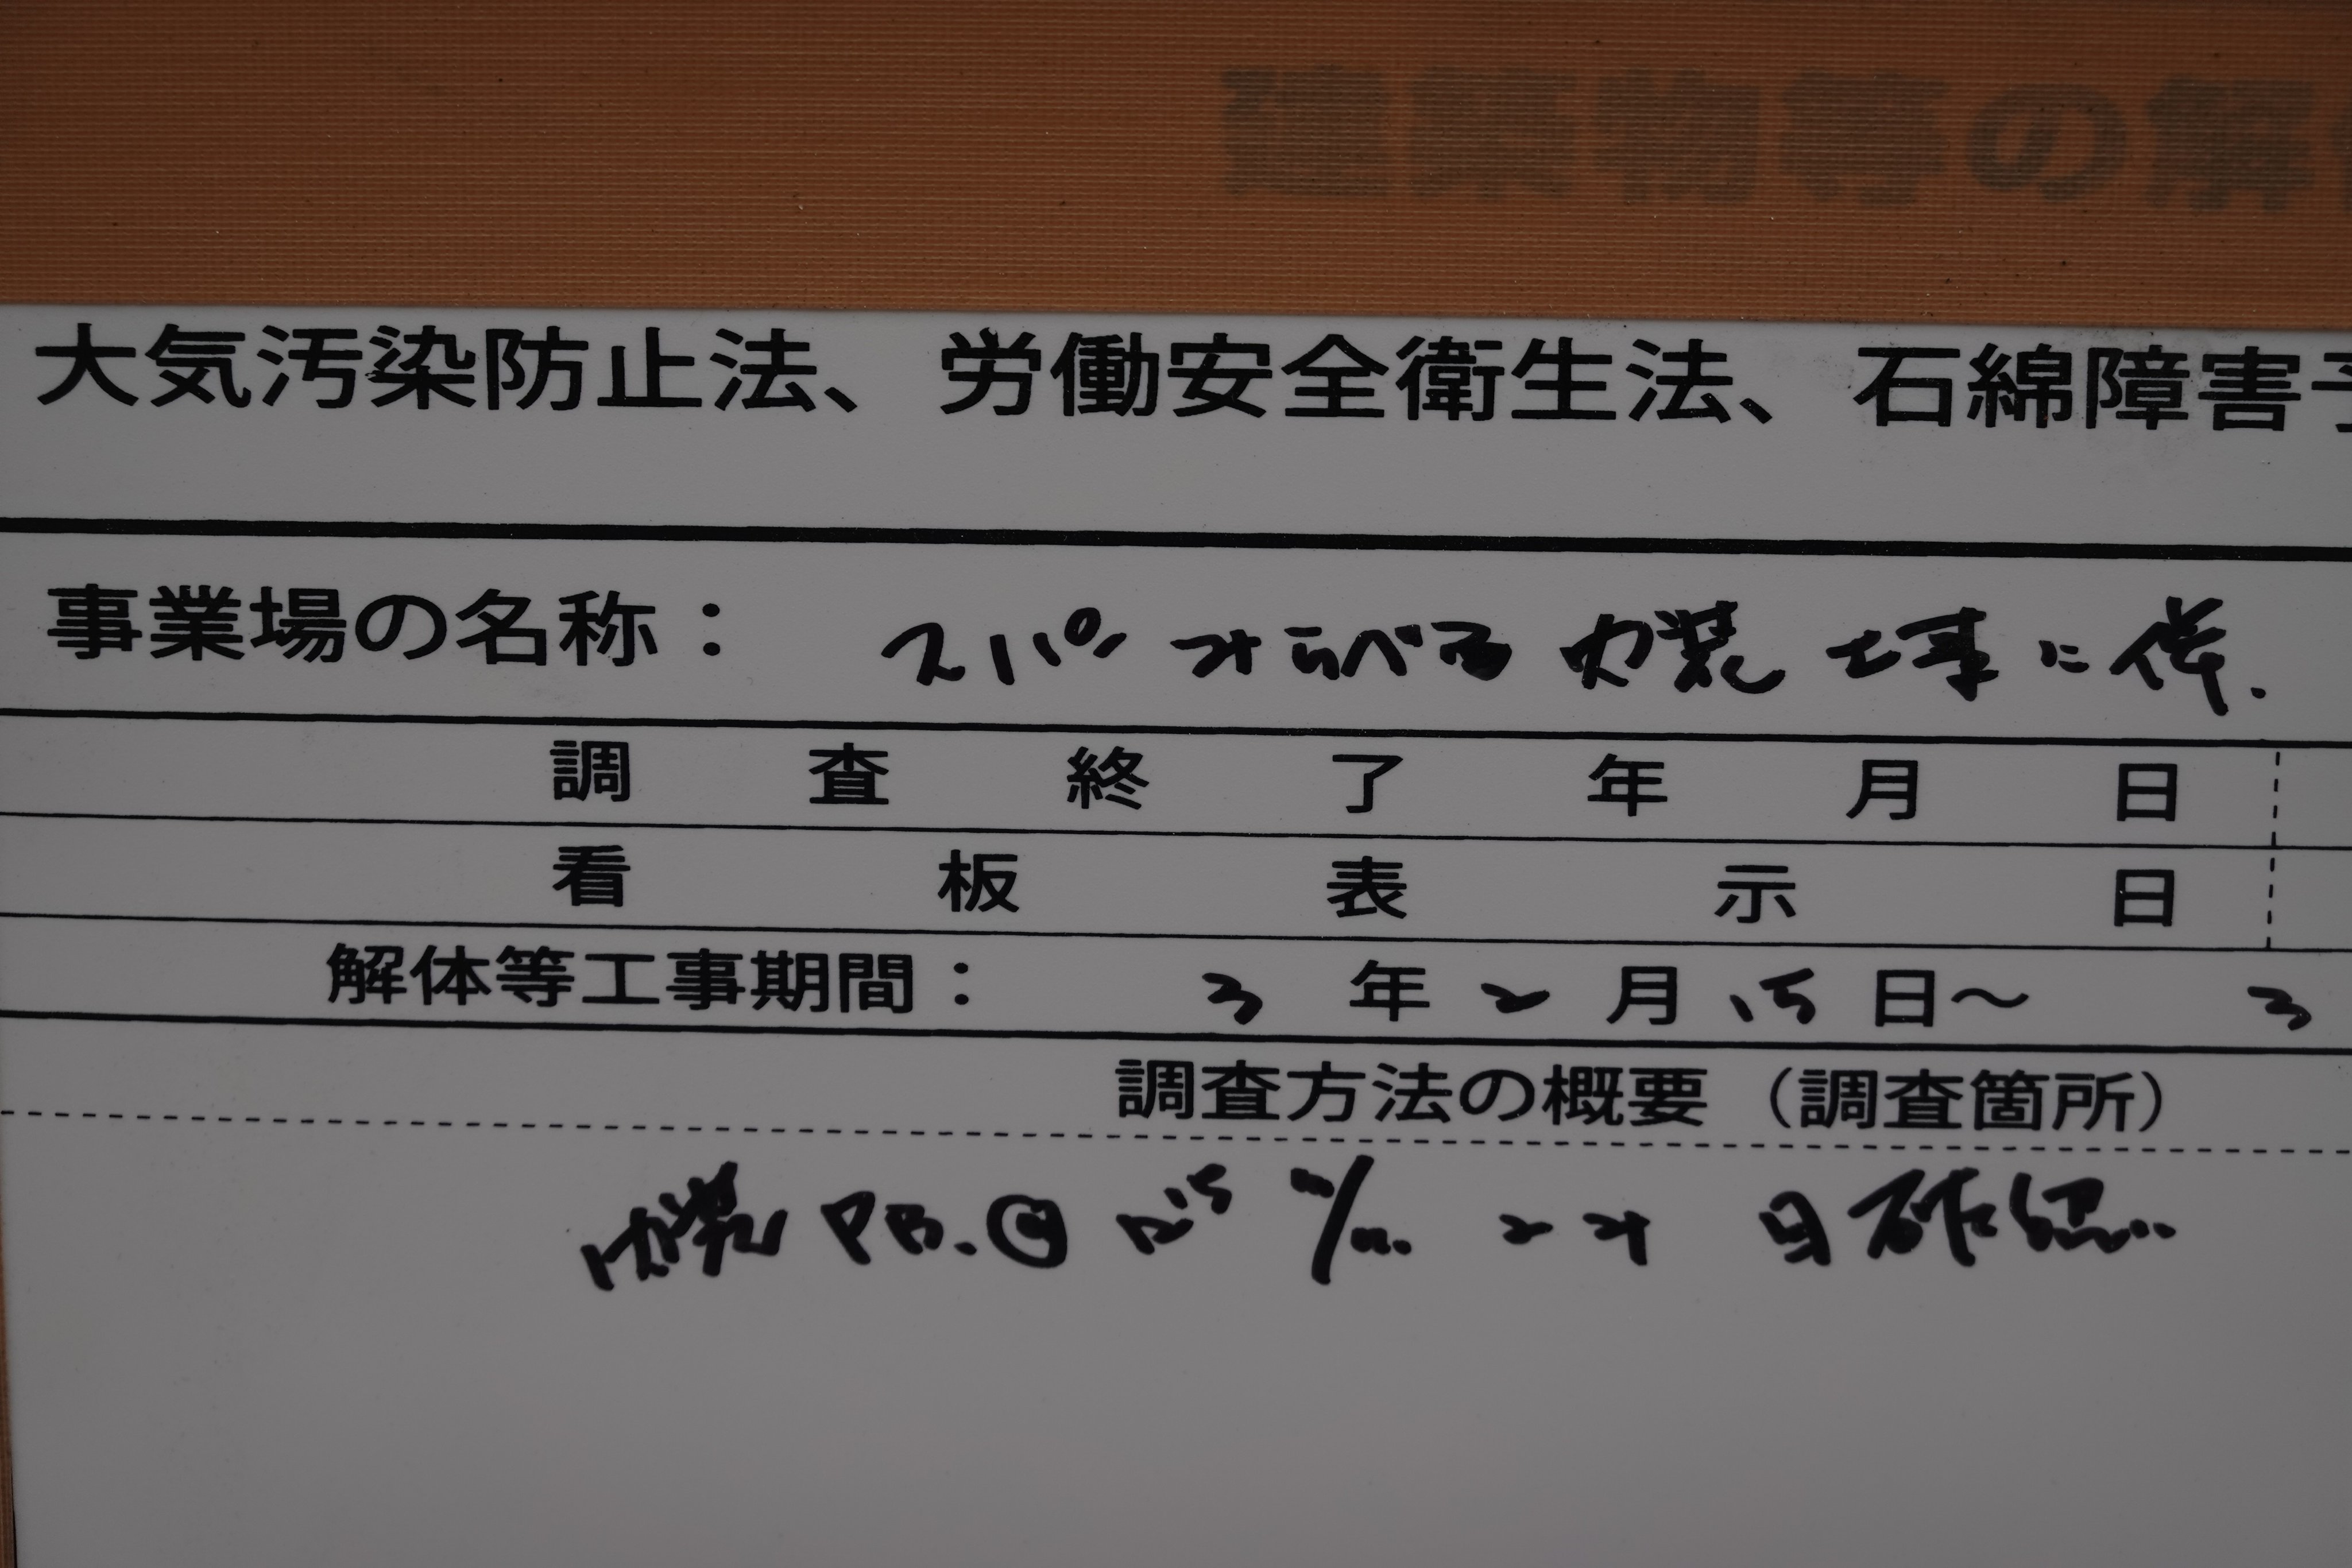 建築物等の解
大気汚染防止法、労働安全衛生法、石綿障害予
事業場の名称：内装工事に伴
調査終了年月日
看板表示日
解体等工事期間： 3 年 2 月 15 日～ 3
調査方法の概要（調査箇所）
内装 PB. 目確認